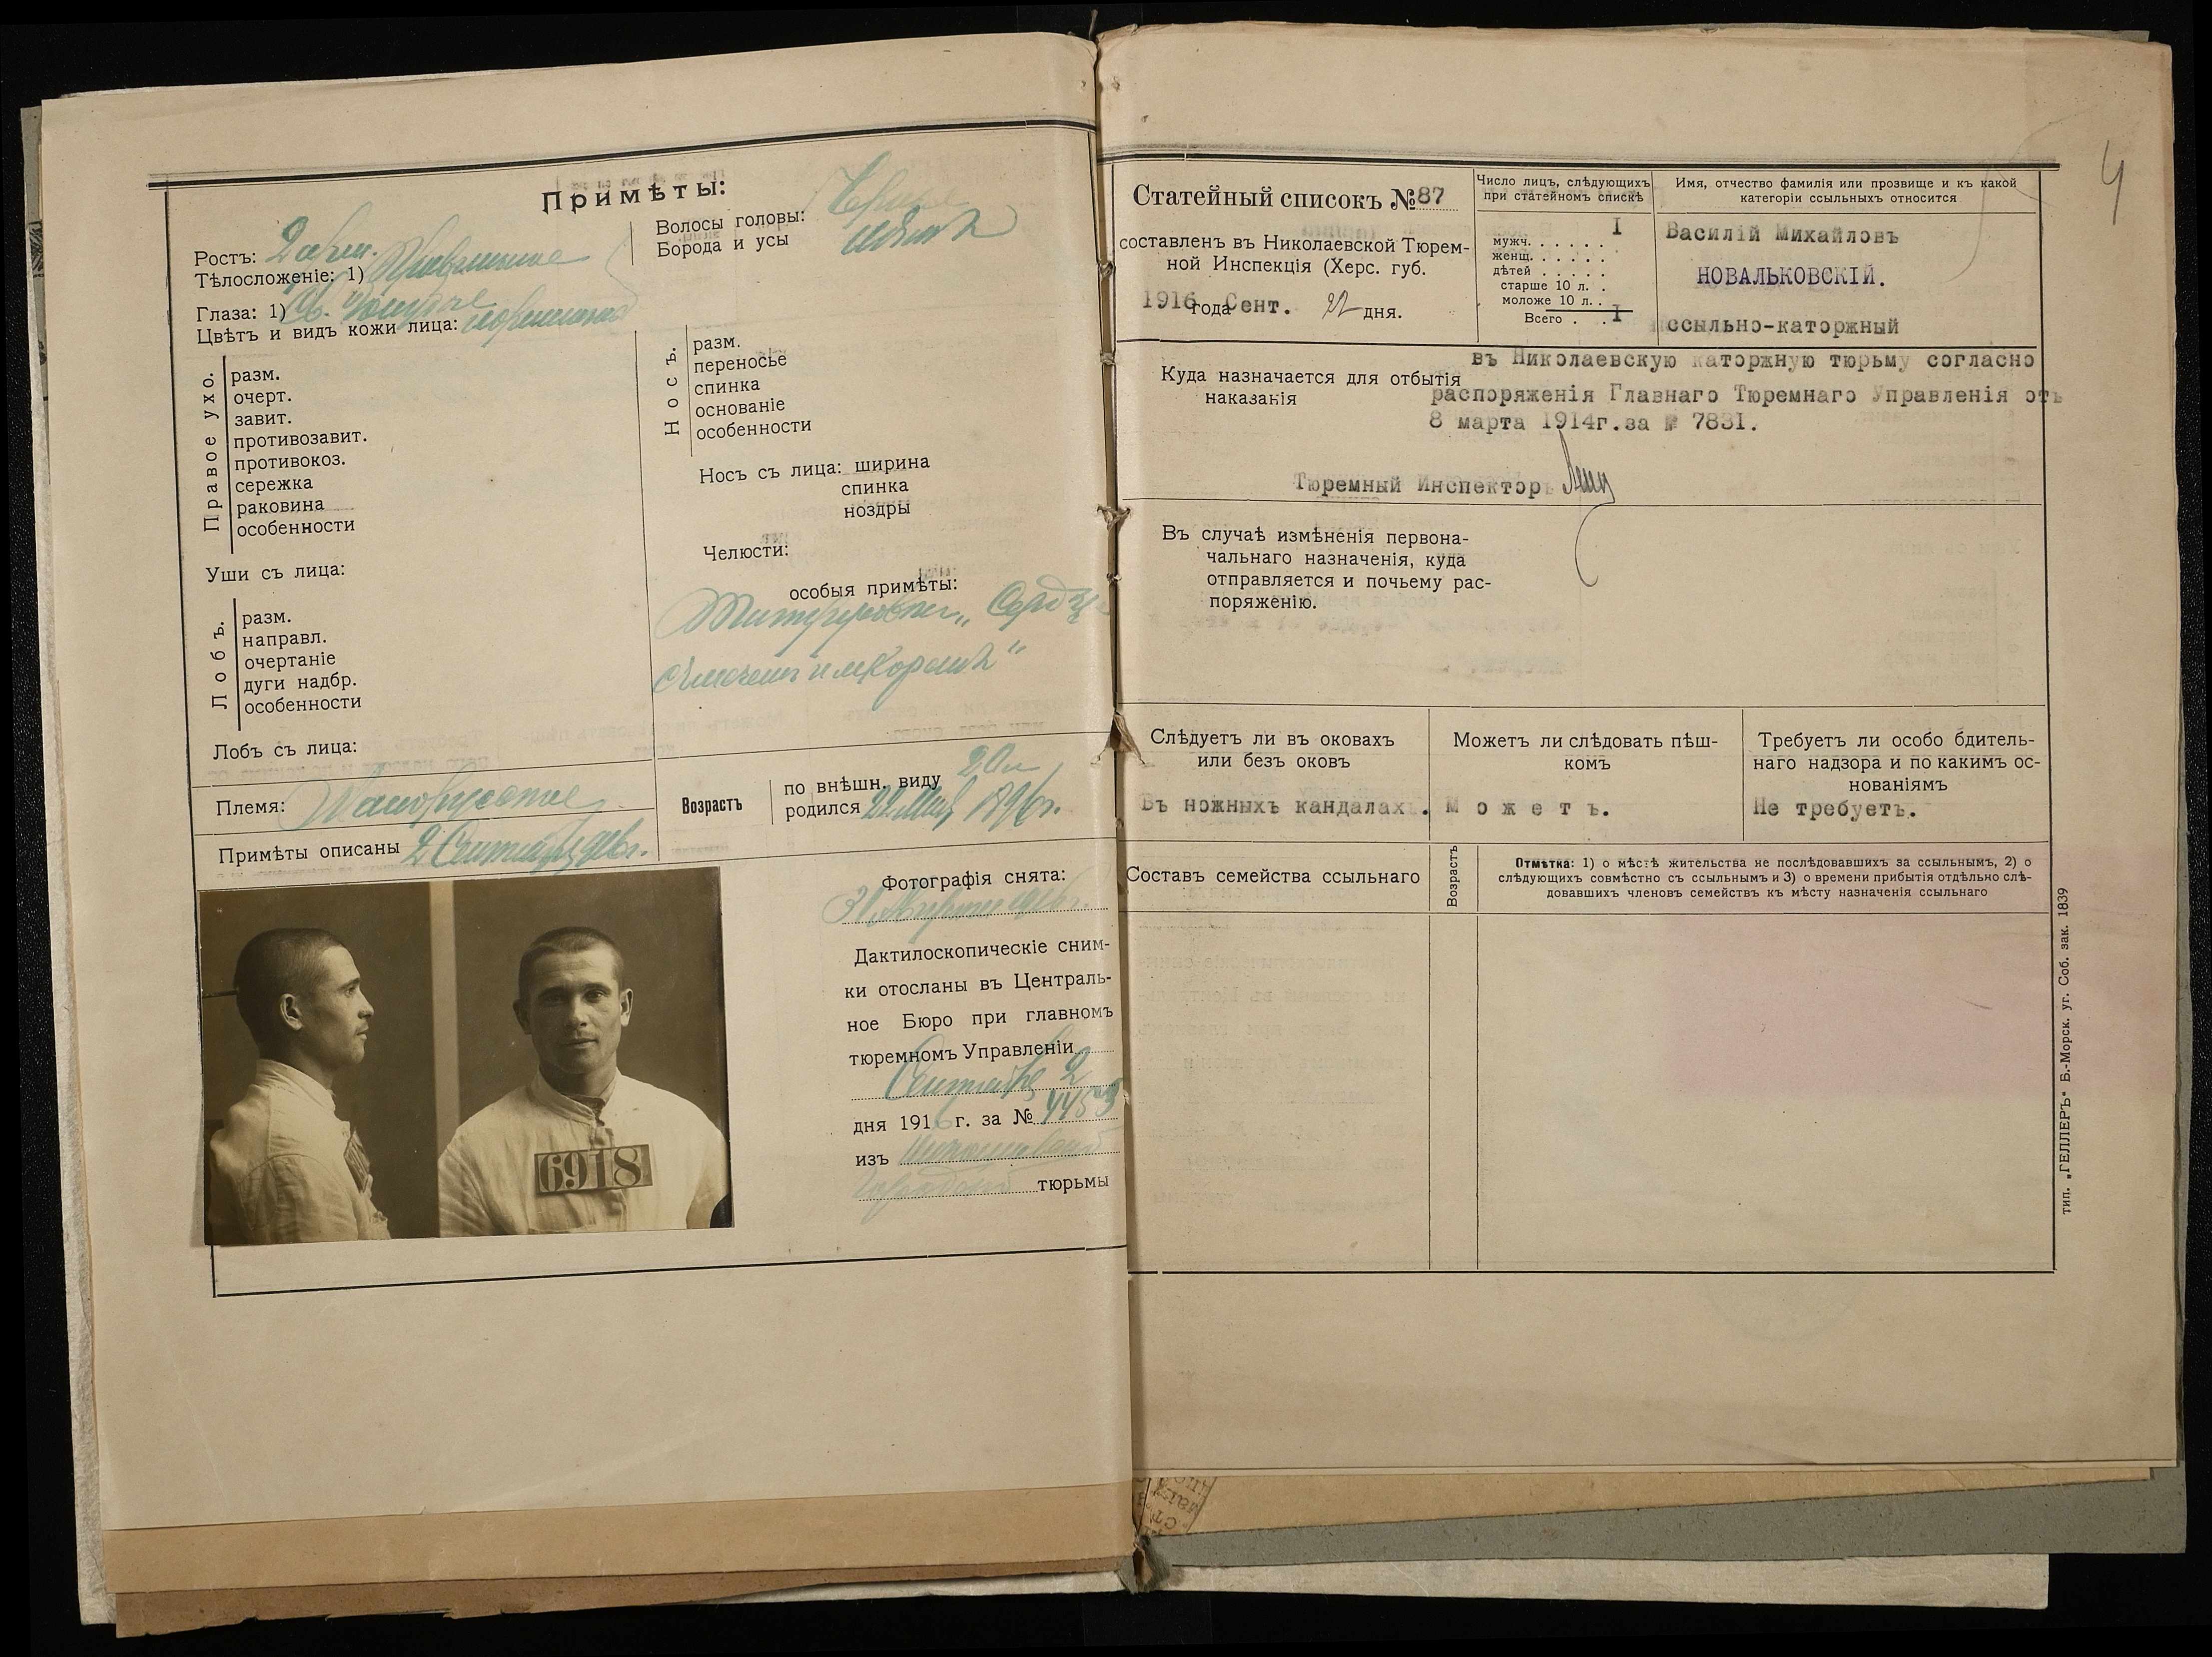 Примѣты:
Ростъ: 2 арш.
Тѣлосложеніе: 1) Правильное
Глаза: 1) Св.
Цвѣтъ и видъ кожи лица:
Волосы головы:
Борода и усы
Правое ухо.
разм.
очерт.
завит.
противозавит.
противокоз.
сережка
раковина
особенности
Уши съ лица:
Лобъ.
разм.
направл.
очертаніе
дуги надбр.
особенности
Лобъ съ лица:
Носъ.
разм.
переносье
спинка
основаніе
особенности
Носъ съ лица: ширина
спинка
ноздри
Челюсти:
особыя примѣты:
Племя:
Примѣты описаны 2 Сентября 916г.
Возрастъ
по внѣшн. виду 20
родился 22 1896г.
6918
Фотографія снята:
Дактилоскопическіе сним-
ки отосланы въ Централь-
ное Бюро при главномъ
тюремномъ Управленіи
Сентября 2
дня 1916 г. за № 4453
изъ Николаевской
тюрьмы
4
Статейный списокъ № 87
составленъ въ Николаевской Тюрем-
ной Инспекція (Херс. губ.
1916 года Сент. 22 дня.
Число лицъ, слѣдующихъ
при статейномъ спискѣ
мужч. . . . . . I
женщ. . . . . .
дѣтей . . . . .
старше 10 л. .
моложе 10 л. .
Всего . . I
Имя, отчество фамилія или прозвище и къ какой
категоріи ссыльныхъ относится
Василій Михайловъ
НОВАЛЬКОВСКІЙ.
ссыльно-каторжный
Куда назначается для отбытія
наказанія
въ Николаевскую каторжную тюрьму согласно
распоряженія Главнаго Тюремнаго Управленія отъ
8 марта 1914г.за № 7831.
Тюремный Инспекторъ
Въ случаѣ измѣненія первона-
чальнаго назначенія, куда
отправляется и почьему рас-
поряженію.
Слѣдуетъ ли въ оковахъ
или безъ оковъ
Въ ножныхъ кандалахъ.
Можетъ ли слѣдовать пѣш-
комъ
Можетъ.
Требуетъ ли особо бдитель-
наго надзора и по какимъ ос-
нованіямъ
Не требуетъ.
Составъ семейства ссыльнаго
Возрастъ
Отмѣтка: 1) о мѣстѣ жительства не послѣдовавшихъ за ссыльнымъ, 2) о
слѣдующихъ совмѣстно съ ссыльнымъ и 3) о времени прибытія отдѣльно слѣ-
довавшихъ членовъ семействъ къ мѣсту назначенія ссыльнаго
тип. „ГЕЛЛЕРЪ“ Б.-Морск. уг. Соб. зак. 1839